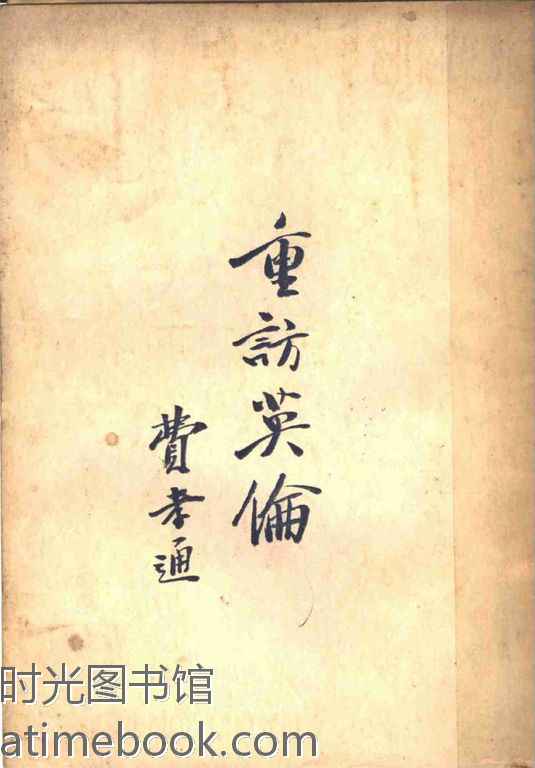 重訪英倫
費孝通
时光图书馆
atimebook.com